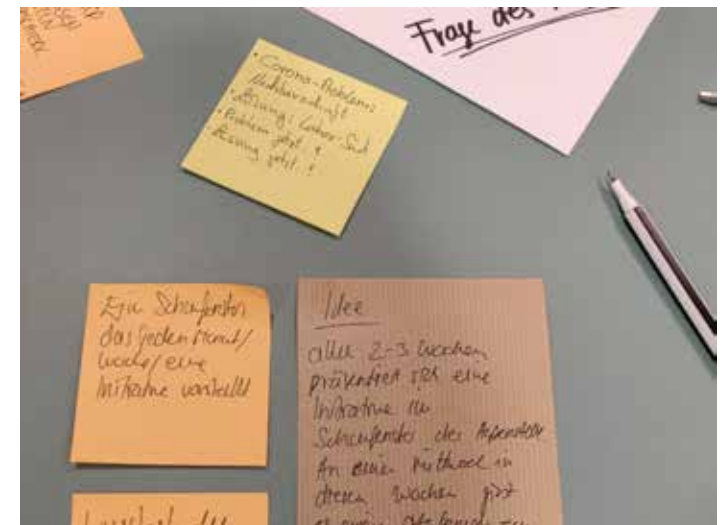 Frage des
• Corona-Problem:
Nachbarschaft
• Lösung: Labor-Süd
• Problem jetzt ?
• Lösung jetzt ?
Ein Schaufenster
das jeden Monat/
Woche/eine
Initiative vorstellt
Idee
alle 2-3 Wochen
präsentiert sich eine
Initiative im
Schaufenster der
An einem Mittwoch in
diesen Wochen gibt
es